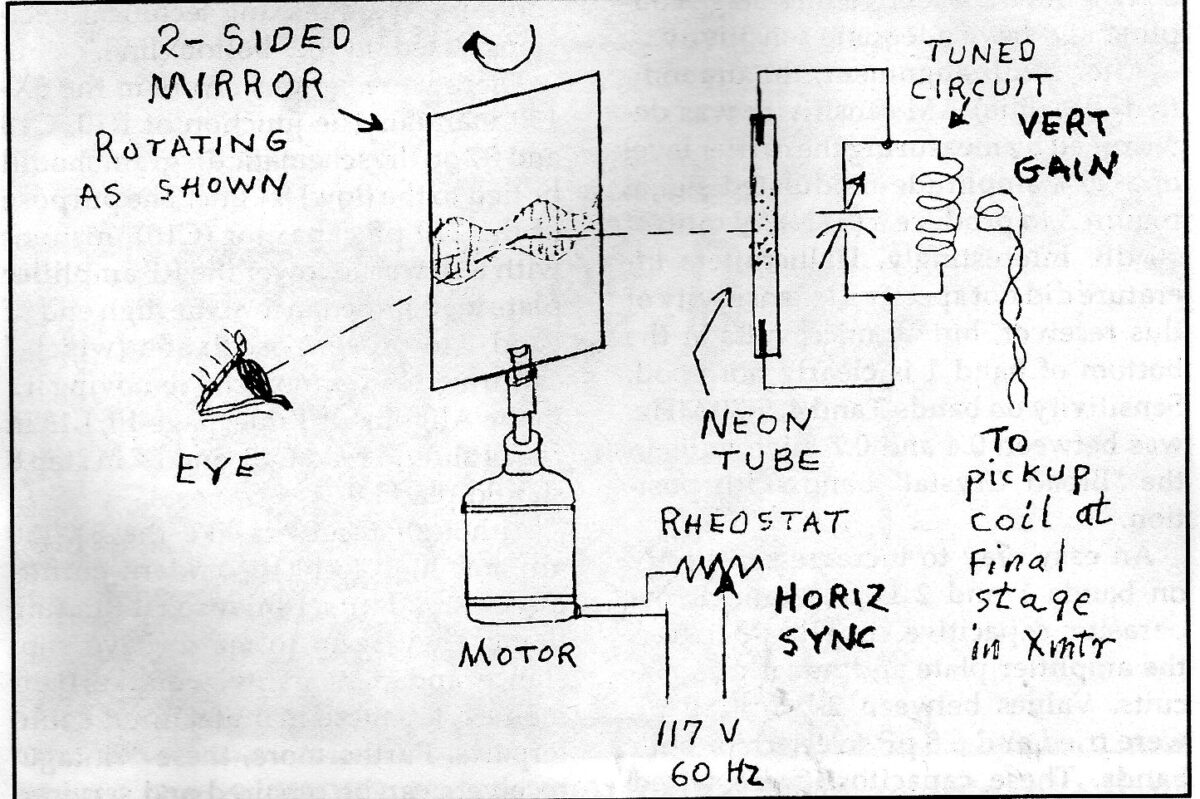 2-SIDED
MIRROR
ROTATING
AS SHOWN
TUNED
CIRCUIT
VERT
GAIN
EYE
NEON
TUBE
To
pickup
coil at
Final
stage
in Xmtr
RHEOSTAT
HORIZ
SYNC
MOTOR
117 V
60 Hz